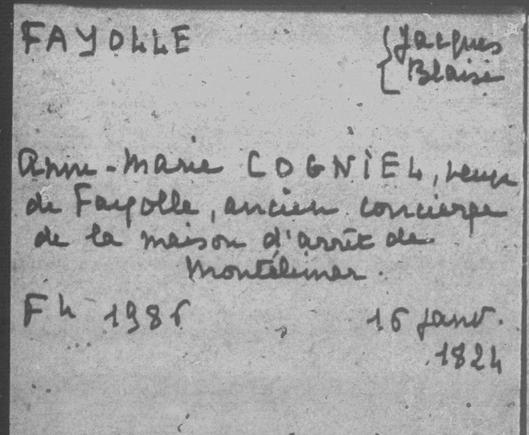 FAYOLLE { Jacques
{ Blaise
Anne-Marie COGNIEL, veuve
de Fayolle, ancien concierge
de la maison d'arrêt de
Montélimar.
F4 1986 16 janv.
1824